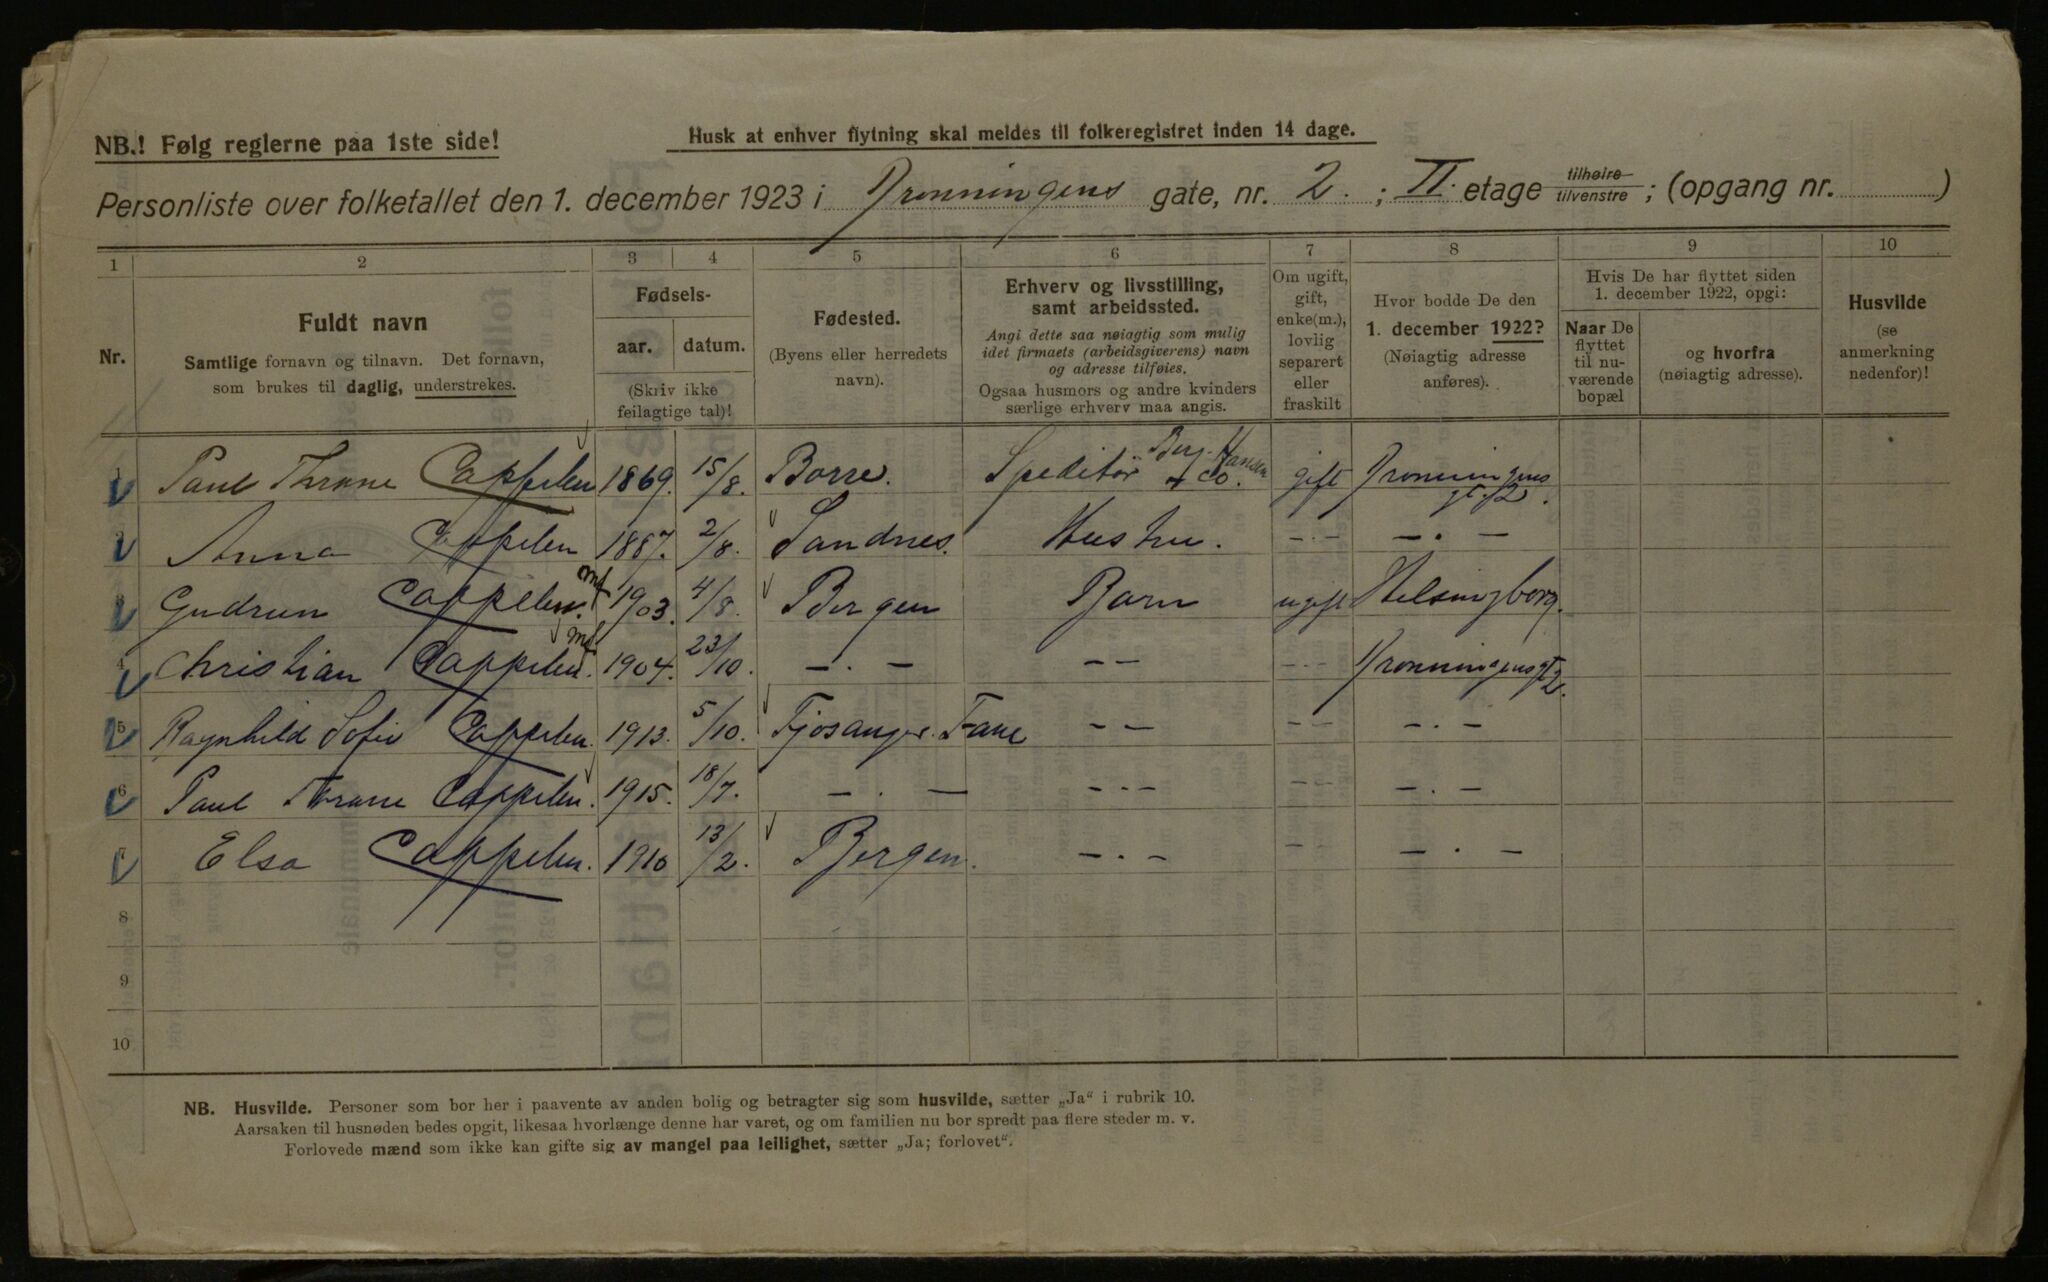 NB.! Følg reglerne paa 1ste side!
Husk at enhver flytning skal meldes til folkeregistret inden 14 dage.
Personliste over folketallet den 1. december 1923 i Dronningens gate, nr. 2. ; II. etage tilhøire / tilvenstre ; (opgang nr. )
1 2 3 4 5 6 7 8 9 10
Nr.
Fuldt navn
Samtlige fornavn og tilnavn. Det fornavn,
som brukes til daglig, understrekes.
Fødsels-
aar. datum.
(Skriv ikke
feilagtige tal)!
Fødested.
(Byens eller herredets
navn).
Erhverv og livsstilling,
samt arbeidssted.
Angi dette saa nøiagtig som mulig
idet firmaets (arbeidsgiverens) navn
og adresse tilføies.
Ogsaa husmors og andre kvinders
særlige erhverv maa angis.
Om ugift,
gift,
enke(m.),
lovlig
separert
eller
fraskilt
Hvor bodde De den
1. december 1922?
(Nøiagtig adresse
anføres).
Hvis De har flyttet siden
1. december 1922, opgi:
Naar De
flyttet
til nu-
værende
bopæl
og hvorfra
(nøiagtig adresse).
Husvilde
(se
anmerkning
nedenfor)!
1 Paul Thrane Cappelen 1869. 15/8. Borre. Speditør Berg-Hansen & Co. gift Dronningens gt. 2.
2 Anna Cappelen 1887. 2/8. Sandnes. Hustru. -.- — . —
3 Gudrun Cappelen. 1903. 4/8. Bergen Barn ugift Helsingborg.
4 Christian Cappelen. 1904. 23/10. — . — — — - - Dronningensgt 2.
5 Ragnhild Sofie Cappelen. 1913. 5/10. Fjosanger. Fane — — - - — . —
6 Paul Thrane Cappelen. 1915. 18/7. — . — - . - - - — . —
7 Elsa Cappelen. 1910 13/2. Bergen. — . — - - — . —
8
9
10
NB. Husvilde. Personer som bor her i paavente av anden bolig og betragter sig som husvilde, sætter „Ja“ i rubrik 10.
Aarsaken til husnøden bedes opgit, likesaa hvorlænge denne har varet, og om familien nu bor spredt paa flere steder m. v.
Forlovede mænd som ikke kan gifte sig av mangel paa leilighet, sætter „Ja; forlovet“.